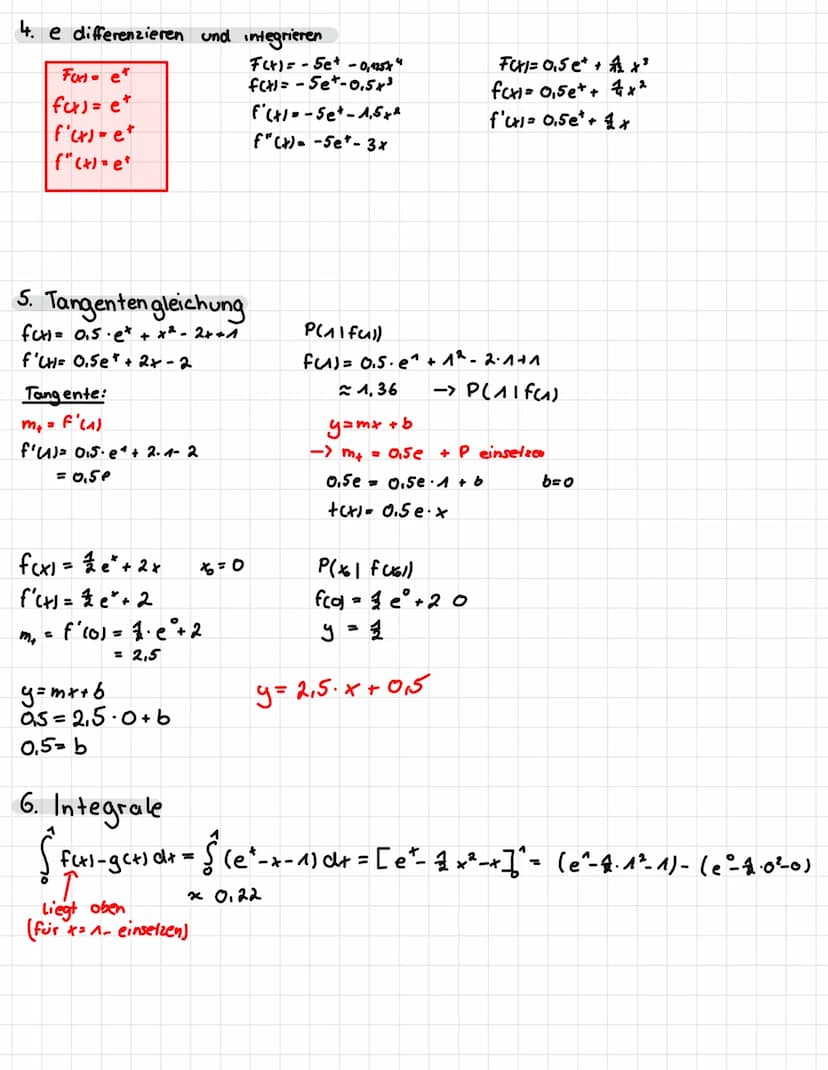 4. e differenzieren und integrieren
F(x) = e^x
f(x) = e^x
f'(x) = e^x
f''(x) = e^x
F(x) = - 5e^x - 0,125x^4
f(x) = - 5e^x - 0,5x^3
f'(x) = - 5e^x - 1,5x^2
f''(x) = -5e^x - 3x
F(x) = 0,5e^x + 1/12 x^3
f(x) = 0,5e^x + 1/4 x^2
f'(x) = 0,5e^x + 1/2 x
5. Tangentengleichung
f(x) = 0,5 · e^x + x^2 - 2x + 1
f'(x) = 0,5e^x + 2x - 2
Tangente:
m_t = f'(1)
f'(1) = 0,5 · e^1 + 2 · 1 - 2
= 0,5e
P(1 | f(1))
f(1) = 0,5 · e^1 + 1^2 - 2 · 1 + 1
≈ 1,36 -> P(1 | f(1)
y = mx + b
-> m_t = 0,5e + P einsetzen
0,5e = 0,5e · 1 + b b=0
t(x) = 0,5e · x
f(x) = 1/2 e^x + 2x x_0 = 0
f'(x) = 1/2 e^x + 2
m_t = f'(0) = 1/2 · e^0 + 2
= 2,5
P(x_0 | f(x_0))
f(0) = 1/2 e^0 + 2 0
y = 1/2
y = mx + b
0,5 = 2,5 · 0 + b
0,5 = b
y = 2,5 · x + 0,5
6. Integrale
∫_0^1 f(x) - g(x) dx = ∫_0^1 (e^x - x - 1) dx = [e^x - 1/2 x^2 - x]_0^1 = (e^1 - 1/2 · 1^2 - 1) - (e^0 - 1/2 · 0^2 - 0)
≈ 0,22
liegt oben
(für x = 1 einsetzen)